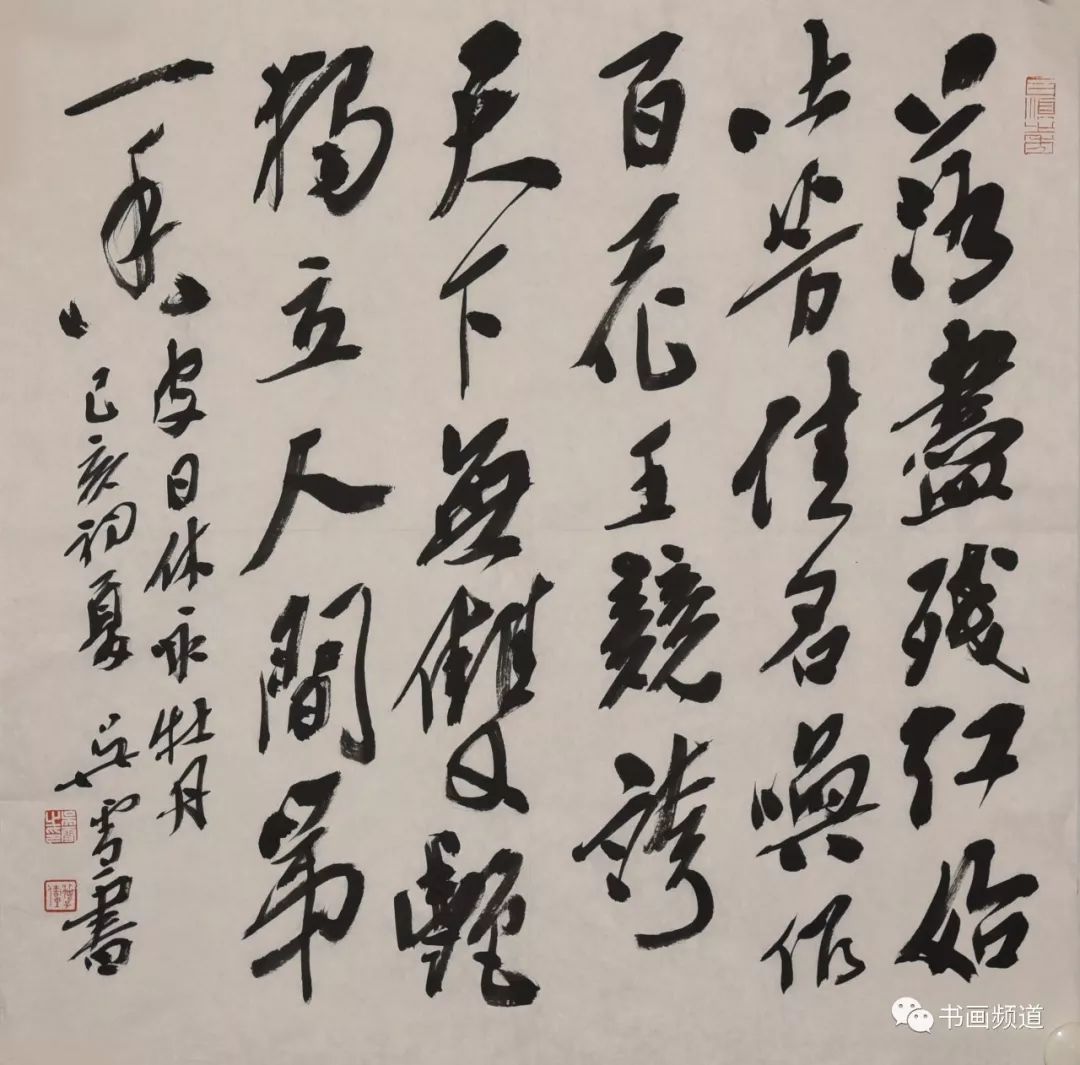 落盡殘紅始
吐芳佳名喚作
百花王競誇
天下無雙艷
獨立人間第
一香 皮日休咏牡丹
己亥初夏 吳雪書
书画频道